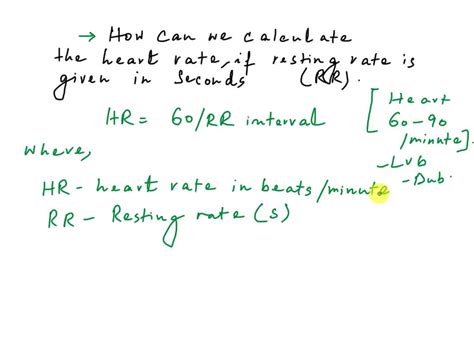 → How can we calculate
the heart rate, if resting rate is
given in Seconds (RR).
HR = 60/RR interval
[Heart
60-90
/minute].
where,
-Lub
-Dub.
HR - heart rate in beats/minute
RR - Resting rate (s)